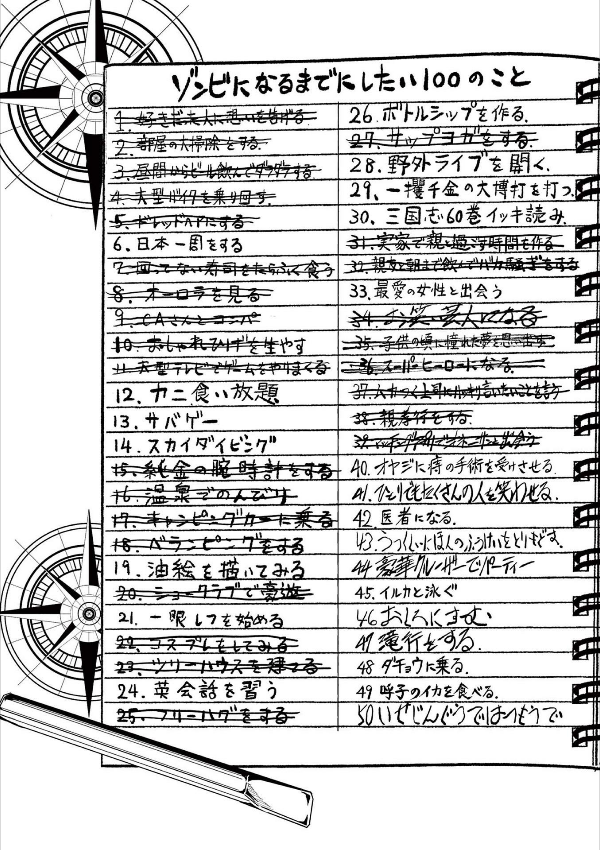 ゾンビになるまでにしたい100のこと
1. 好きだった人に想いを告げる.
2. 部屋の大掃除をする.
3. 昼間からビール飲んでダラダラする
4. 大型バイクを乗り回す.
5. ドレッドヘアにする
6. 日本一周をする
7. 回ってない寿司をたらふく食う
8. オーロラを見る
9. CAさんとコンパ
10. おしゃれひげを生やす
11. 大型テレビでゲームをやりまくる
12. カニ食い放題
13. サバゲー
14. スカイダイビング
15. 純金の腕時計をする
16. 温泉でのんびり
17. キャンピングカーに乗る
18. ベランピングをする
19. 油絵を描いてみる
20. ショークラブで豪遊
21. 一眼レフを始める
22. コスプレをしてみる
23. ツリーハウスを建てる
24. 英会話を習う
25. フリーハグをする
26. ボトルシップを作る.
27. サップヨガをする.
28. 野外ライブを開く.
29. 一攫千金の大博打を打つ.
30. 三国志60巻イッキ読み.
31. 実家で親と過ごす時間を作る.
32. 親友と朝まで飲んでバカ騒ぎをする
33. 最愛の女性と出会う
34. お笑い芸人になる
35. 子供の頃に憧れた夢を思い出す
36. スーパーヒーローになる.
37. ムカつく上司にハッキリ言いたいことを言う
38. 親孝行をする.
40. オヤジに痔の手術を受けさせる.
41. ひとりでもたくさんの人を笑わせる.
42. 医者になる.
43. うつくしいにほんのふうけいをとりもどす.
44 豪華クルーザーでパーティー
45. イルカと泳ぐ
46 おしろにすむ
47 滝行をする.
48 ダチョウに乗る.
49 呼子のイカを食べる.
50 いせじんぐうではつもうで